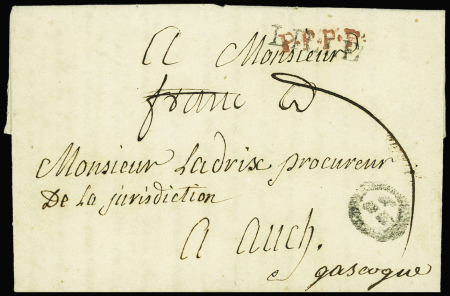 P.P.P.P.
A Monsieur
franc
Monsieur Ladrix procureur
De la jurisdiction
A auch.
gascogne